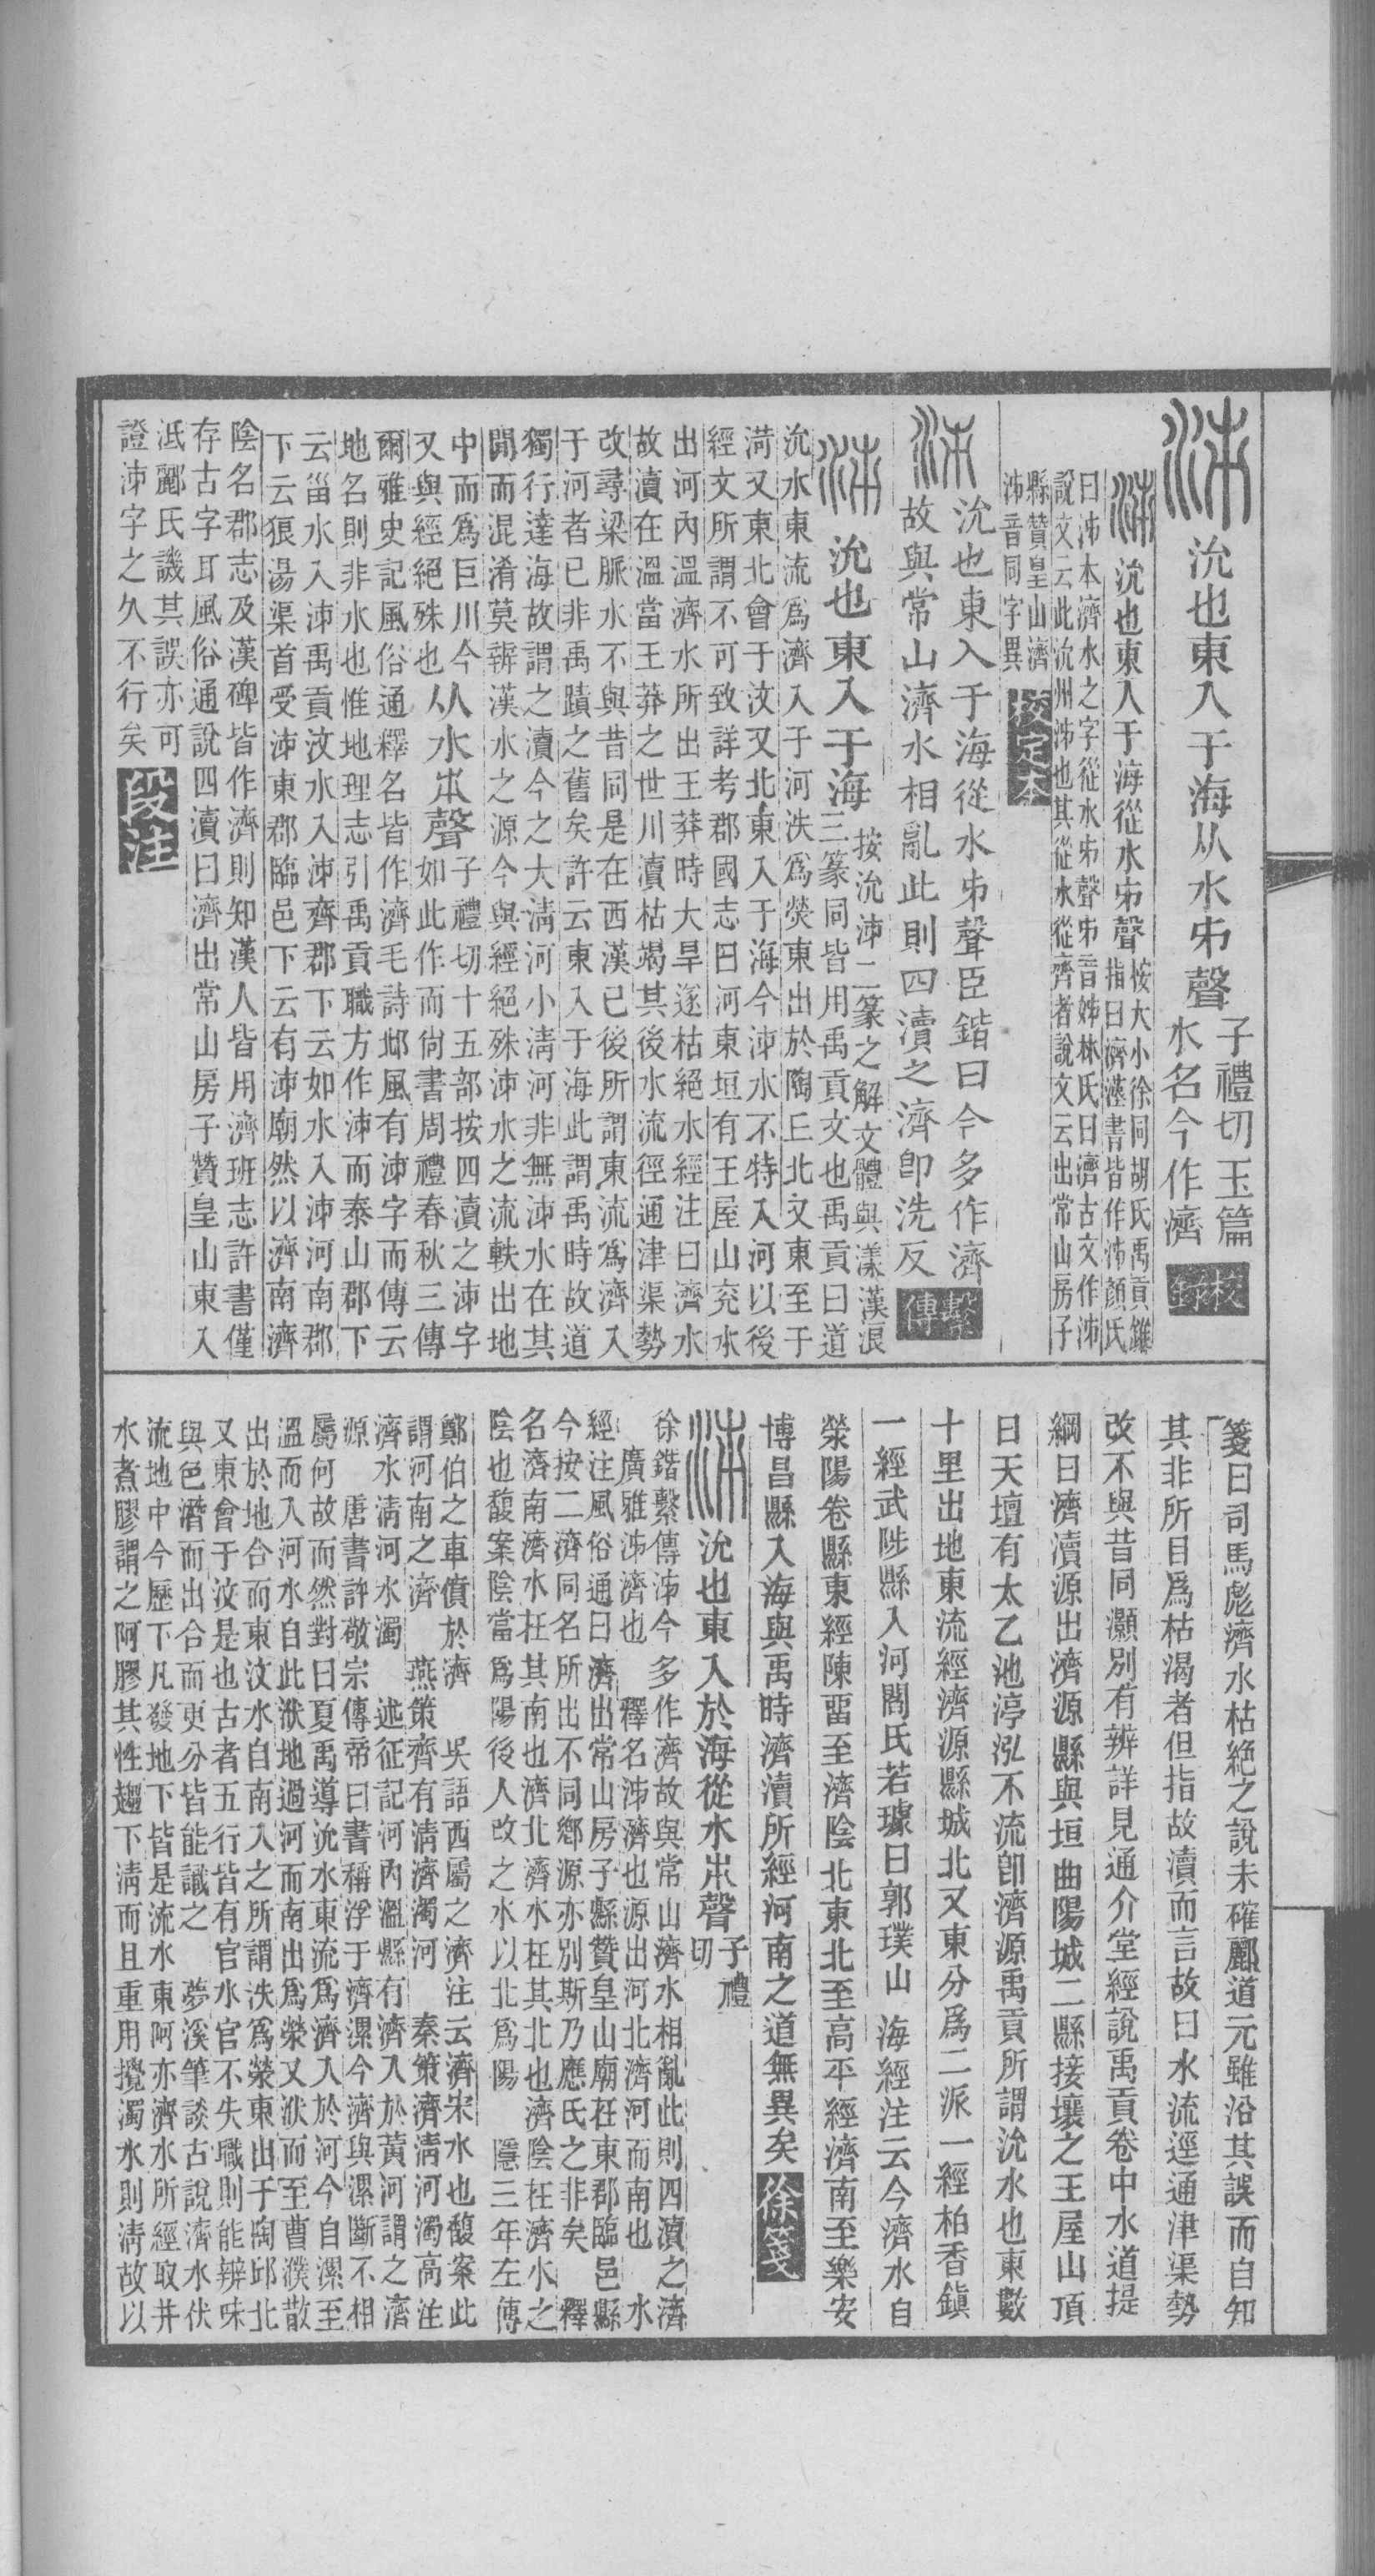 沇也東入于海从水𠂔聲子禮切玉篇
水名今作濟 校錄
沇也東入于海從水𠂔聲桉大小徐同胡氏禹貢錐
指曰濟漢書皆作泲顏氏
曰泲本濟水之字從水𠂔聲𠂔音姊林氏曰濟古文作泲
說文云此沇州泲也其從水從齊者說文云出常山房子
縣贊皇山濟
泲音同字異 校定本
沇也東入于海從水𠂔聲臣鍇曰今多作濟
故與常山濟水相亂此則四瀆之濟卽洗反 繫傳
沇也東入于海按沇泲二篆之解文體與漾漢浪
三篆同皆用禹貢文也禹貢曰道
沇水東流爲濟入于河泆爲熒東出於陶丘北又東至于
菏又東北會于汶又北東入于海今泲水不特入河以後
經文所謂不可致詳考郡國志曰河東垣有王屋山兖水
出河內溫濟水所出王莽時大旱遂枯絕水經注曰濟水
故瀆在溫當王莽之世川瀆枯竭其後水流徑通津渠勢
改尋梁脈水不與昔同是在西漢已後所謂東流爲濟入
于河者已非禹蹟之舊矣許云東入于海此謂禹時故道
獨行達海故謂之瀆今之大清河小清河非無泲水在其
閒而混淆莫辨漢水之源今與經絕殊泲水之流軼出地
中而爲巨川今从水𠂔聲子禮切十五部按四瀆之泲字
又與經絕殊也如此作而尙書周禮春秋三傳
爾雅史記風俗通釋名皆作濟毛詩邶風有泲字而傳云
地名則非水也惟地理志引禹貢職方作泲而泰山郡下
云甾水入泲禹貢汶水入泲齊郡下云如水入泲河南郡
下云狼湯渠首受泲東郡臨邑下云有泲廟然以濟南濟
陰名郡志及漢碑皆作濟則知漢人皆用濟班志許書僅
存古字耳風俗通說四瀆曰濟出常山房子贊皇山東入
泜酈氏譏其誤亦可
證泲字之久不行矣 段注
箋曰司馬彪濟水枯絕之說未確酈道元雖沿其誤而自知
其非所目爲枯渴者但指故瀆而言故曰水流逕通津渠勢
改不與昔同灝別有辨詳見通介堂經說禹貢卷中水道提
綱曰濟瀆源出濟源縣與垣曲陽城二縣接壤之王屋山頂
曰天壇有太乙池渟泓不流卽濟源禹貢所謂沇水也東數
十里出地東流經濟源縣城北又東分爲二派一經柏香鎭
一經武陟縣入河閻氏若璩曰郭璞山 海經注云今濟水自
滎陽卷縣東經陳畱至濟陰北東北至高平經濟南至樂安
博昌縣入海與禹時濟瀆所經河南之道無異矣 徐箋
沇也東入於海從水𠂔聲子禮
切
徐鍇繫傳泲今多作濟故與常山濟水相亂此則四瀆之濟
廣雅泲濟也 釋名泲濟也源出河北濟河而南也 水
經注風俗通曰濟出常山房子縣贊皇山廟在東郡臨邑縣
今按二濟同名所出不同鄕源亦別斯乃應氏之非矣 釋
名濟南濟水在其南也濟北濟水在其北也濟陰在濟水之
陰也馥案陰當爲陽後人改之水以北爲陽 隱三年左傳
鄭伯之車僨於濟 吳語西屬之濟注云濟宋水也馥案此
謂河南之濟 燕策齊有清濟濁河 秦策濟清河濁高注
濟水清河水濁 述征記河內溫縣有濟入於黃河謂之濟
源 唐書許敬宗傳帝曰書稱浮于濟漯今濟與漯斷不相
屬何故而然對曰夏禹導沇水東流爲濟入於河今自漯至
溫而入河水自此洑地過河而南出爲滎又洑而至曹濮散
出於地合而東汶水自南入之所謂泆爲滎東出于陶邱北
又東會于汶是也古者五行皆有官水官不失職則能辨味
與色潛而出合而更分皆能識之 夢溪筆談古說濟水伏
流地中今歷下凡發地下皆是流水東阿亦濟水所經取井
水煮膠謂之阿膠其性趨下清而且重用攪濁水則清故以